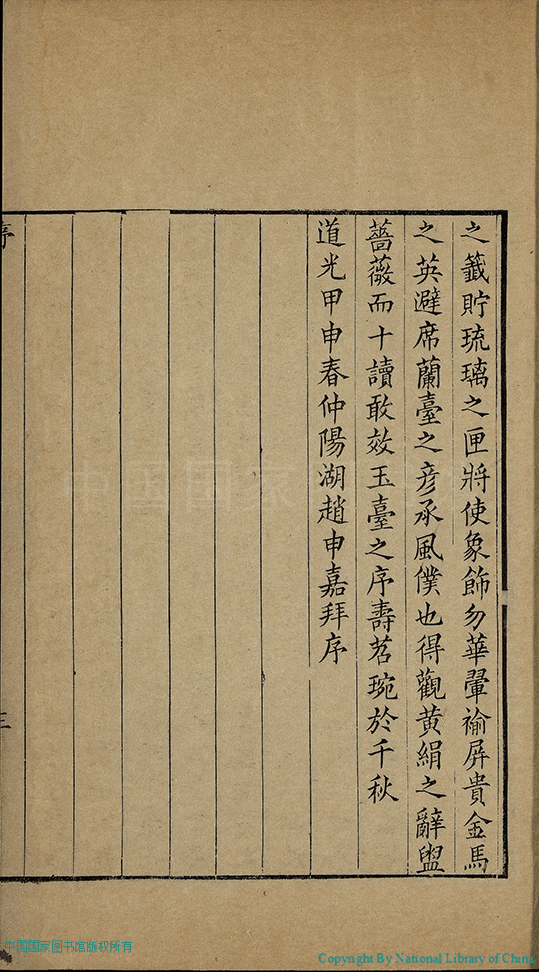 之籤貯琉璃之匣將使象飾勿華翬褕屏貴金馬
之英避席蘭臺之彥承風僕也得觀黃絹之辭盥
薔薇而十讀敢效玉臺之序壽苕琬於千秋
道光甲申春仲陽湖趙申嘉拜序
序
三
中国国家
中国国家图书馆版权所有
Copyright By National Library of China